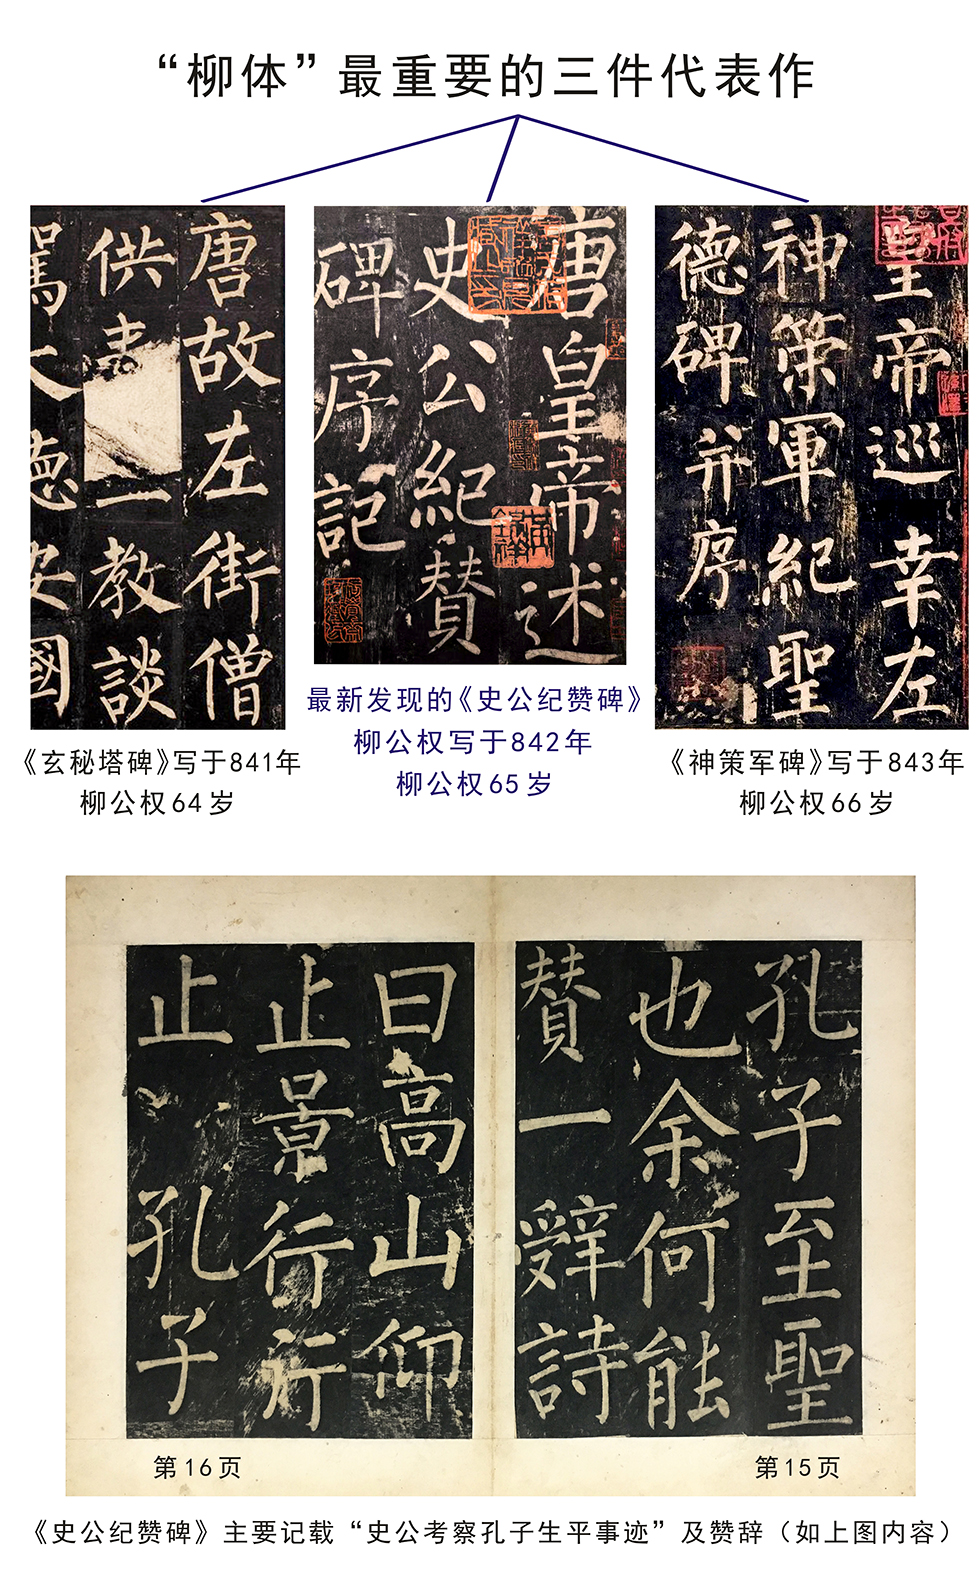 “柳体”最重要的三件代表作
唐故左街僧
供奉
一教談
駕大德安國
唐皇帝述
史公紀赞
碑序記
皇帝巡幸左
神策軍紀聖
德碑并序
《玄秘塔碑》写于841年
柳公权64岁
最新发现的《史公纪赞碑》
柳公权写于842年
柳公权65岁
《神策军碑》写于843年
柳公权66岁
孔子至聖
也余何能
赞一辭詩
曰高山仰
止景行行
止 孔子
第16页
第15页
《史公纪赞碑》主要记载“史公考察孔子生平事迹”及赞辞（如上图内容）